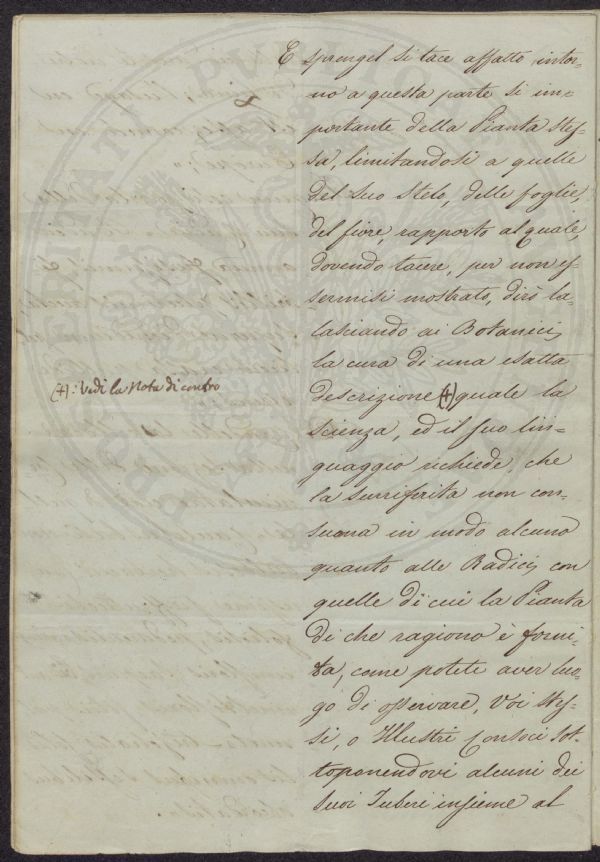 E sprengel si tace affatto intor=
no a questa parte si im=
portante della Pianta stes=
sa, limitandosi a quelle
del suo stelo, delle foglie,
del fiore, rapporto al quale,
dovendo tacere, per non es=
sermisi mostrato, dirò la=
lasciando ai Botanici,
la cura di una esatta
(+): Vedi la Nota di contro
descrizione (+) quale la
scienza, ed il suo lin=
guaggio richiede, che
la surriferita non con=
suona in modo alcuno
quanto alle Radici, con
quelle di cui la Pianta
di che ragiono è forni=
ta, come potete aver luo=
go di osservare, Voi stes=
si, o Illustri Consoci sot=
toponendovi alcuni dei
suoi Tuberi insieme al
PROSPERITATI PUBLICAE